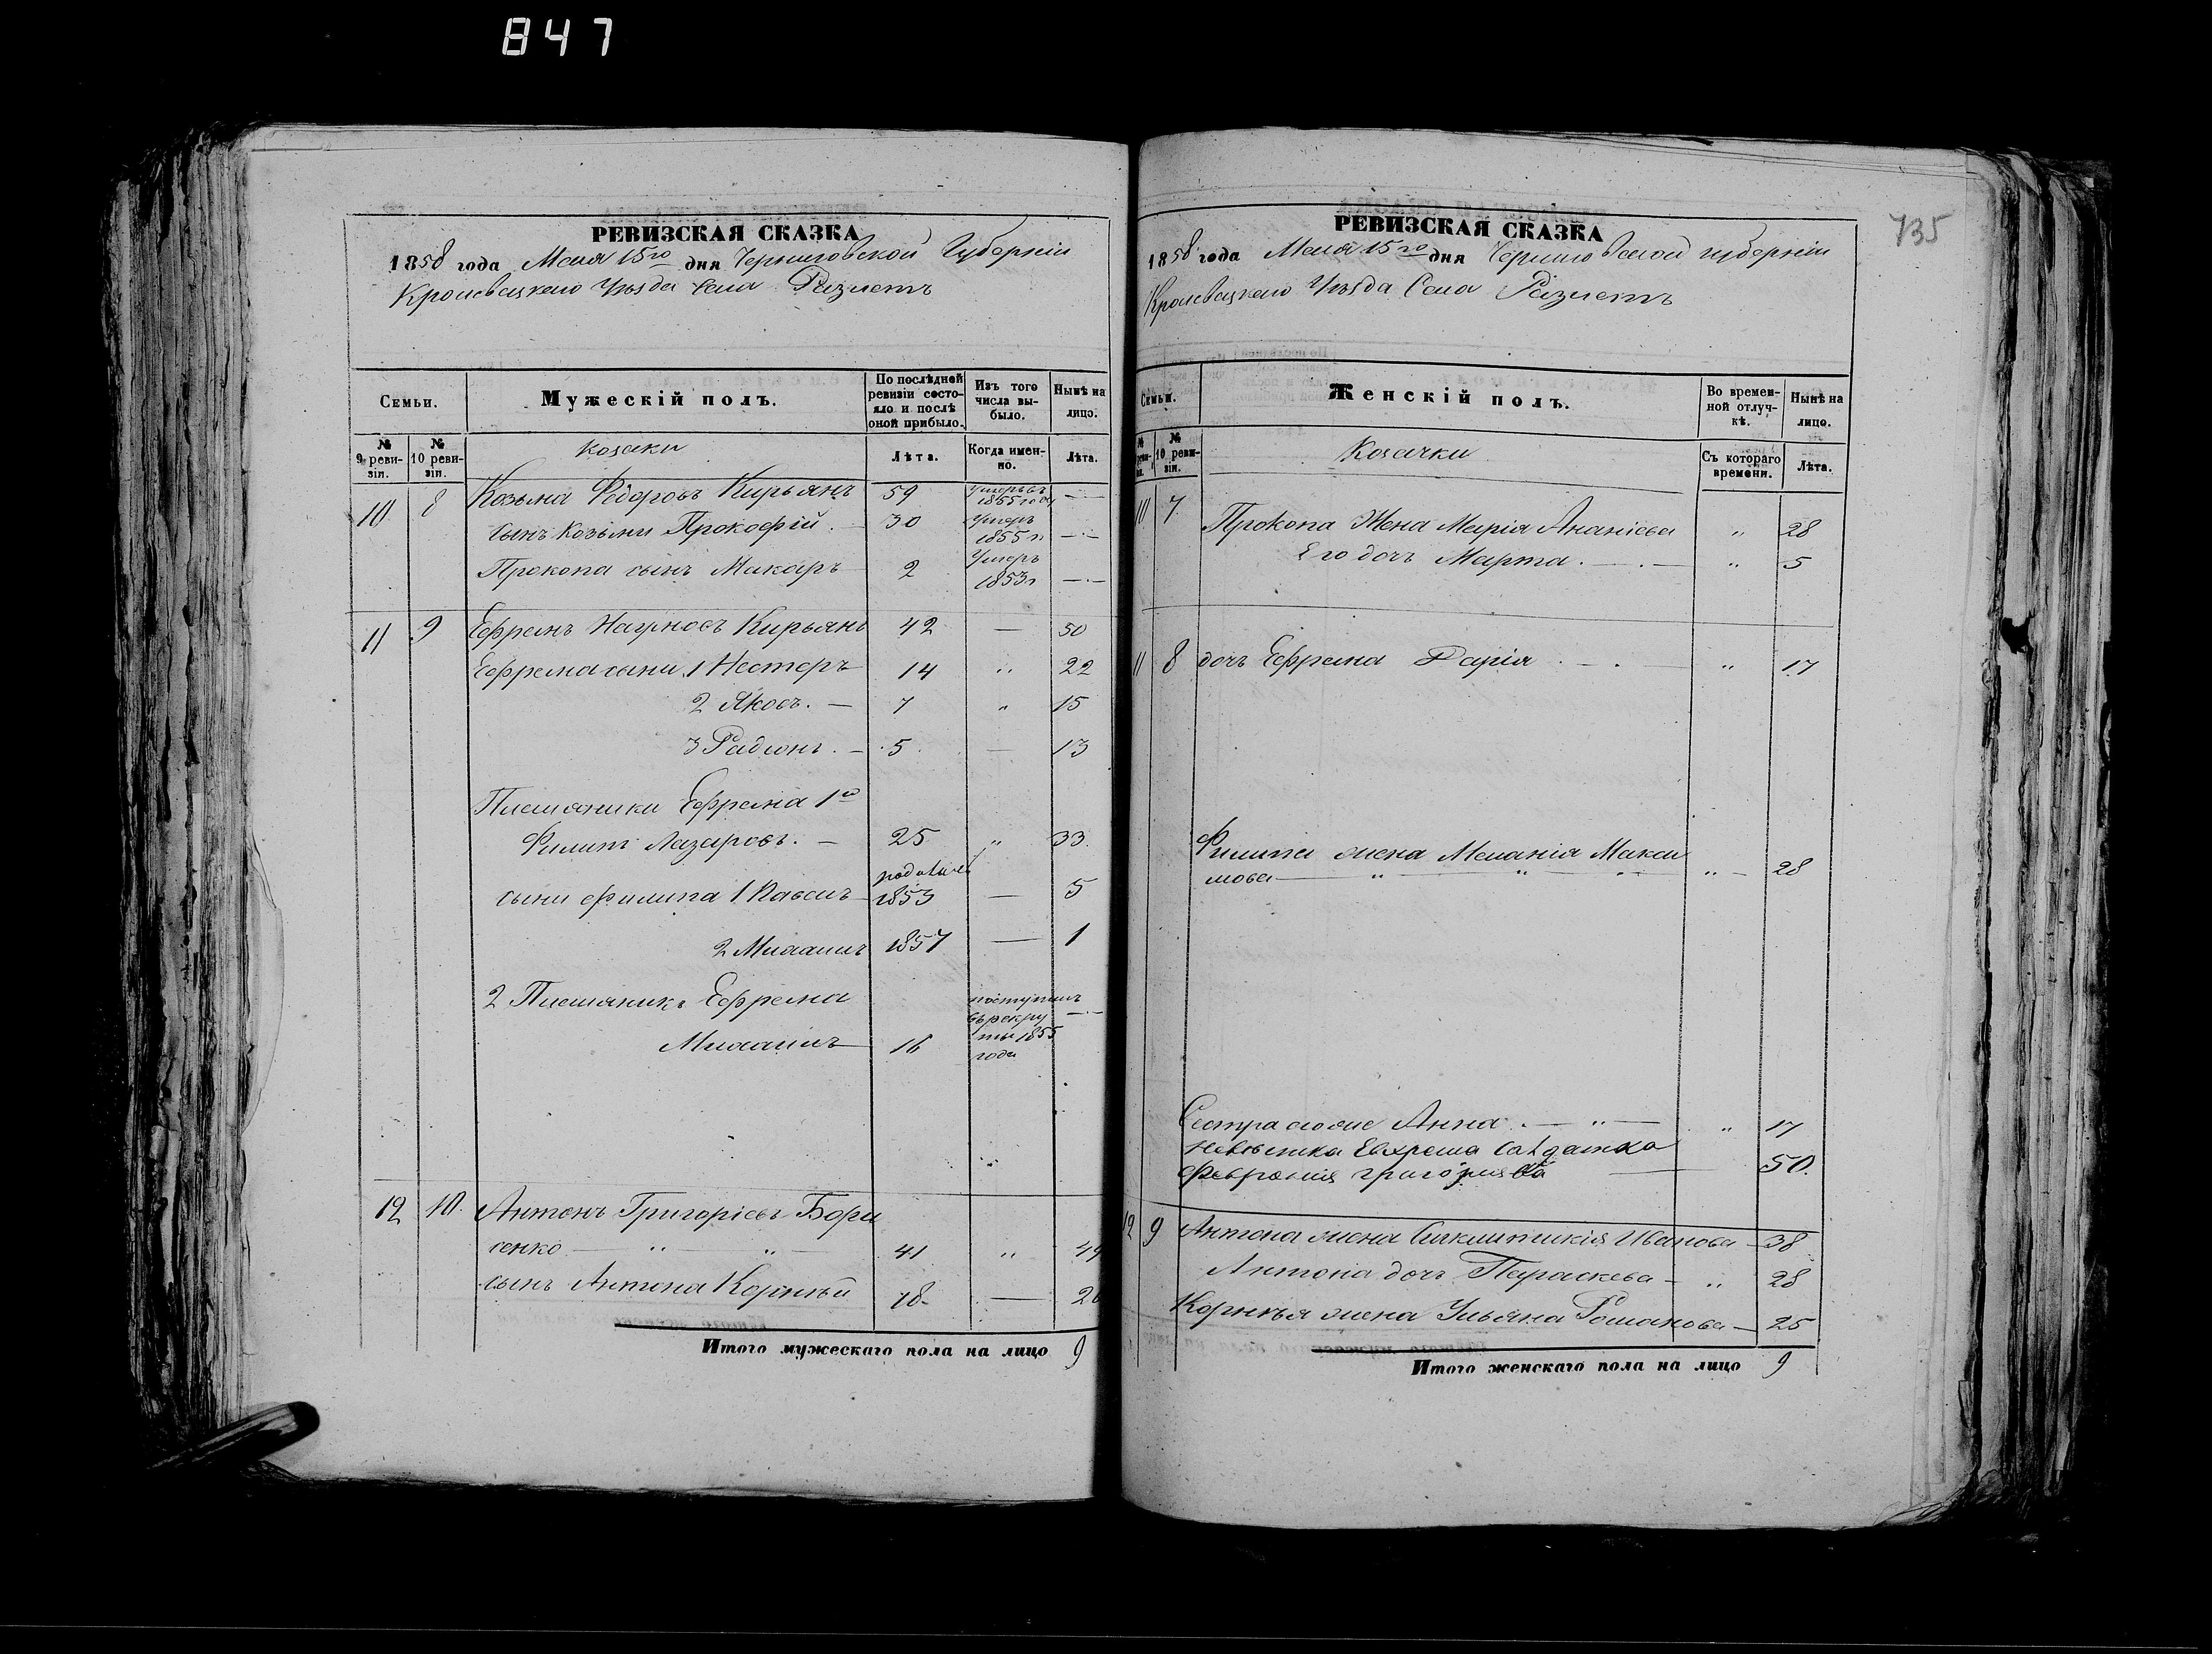 847
РЕВИЗСКАЯ СКАЗКА
1858 года Мая 15го дня Черниговской Губерніи
Кролевецкаго Уѣзда Села Разлетъ
Семьи.
Мужескій полъ.
По послѣдней ревизіи состояло и послѣ оной прибыло.
Изъ того числа выбыло.
Нынѣ на лицо.
№ 9 ревизіи.
№ 10 ревизіи.
козаки
Лѣта.
Когда именно.
Лѣта.
10 8 Козьма Федоровъ Кирьянъ 59 Умеръ въ 1855 году —
сынъ Козьмы Прокофій 30 Умеръ 1855 г —
Прокопа сынъ Макаръ 2 Умеръ 1853 г —
11 9 Ефремъ Наумовъ Кирьянъ 42 — 50
Ефрема сыны 1 Несторъ 14 „ 22
2 Яковъ. — 7 „ 15
3 Радионъ. — 5 — 13
Племяники Ефрема 1й
Филипъ Лазаровъ. — 25 „ 33
сыны Филипа 1 Павелъ родился 1853 — 5
2 Михаилъ 1857 — 1
2 Племяникъ Ефрема
Михаилъ 16 поступилъ въ рекруты 1855 года —
12 10 Антонъ Григоріевъ Бори
сенко — „ „ 41 „ 49
сынъ Антона Корнѣй 18 — 26
Итого мужескаго пола на лицо 9
735
РЕВИЗСКАЯ СКАЗКА
1858 года Мая 15го дня Черниговской губерніи
Кролевецкаго Уѣзда Села Разлетъ
Семьи.
Женскій полъ.
Во временной отлучкѣ.
Нынѣ на лицо.
№ 10 ревизіи.
Козачки
Съ котораго времени.
Лѣта.
10 7 Прокопа Жена Марія Ананіева „ 28
Его дочь Марта. — . — „ 5
11 8 дочь Ефрема Дарія . — . — „ 17
Филипа жена Меланія Макси
мова — „ — „ — „ — „ — 28
Сестра Анна . — „ — „ 17
Невѣстка Ефрема Салдатка
Феврония григорьява — 50.
12 9 Антона жена Ивановa — 38
Антона дочь Параскева — „ 28
Корнѣя жена Ульяна Романова — 25
Итого женскаго пола на лицо 9